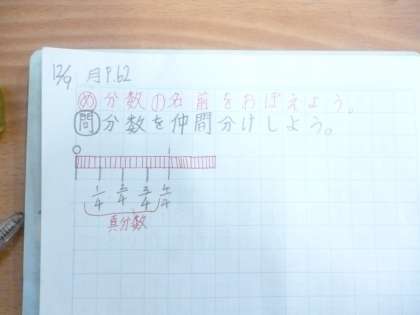 12/9 月 P.62
め 分数の名前をおぼえよう。
問 分数を仲間分けしよう。
0
1/4 2/4 3/4 4/4
真分数